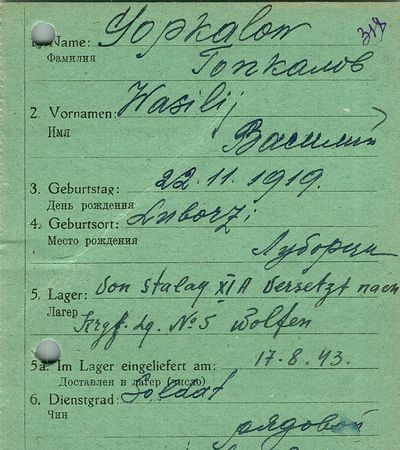 318
1. Name: Gopkalow
Фамилия
Гопкалов
2. Vornamen: Wasilij
Имя
Василий
3. Geburtstag: 22.11.1919.
День рождения
4. Geburtsort: Luborzi
Место рождения
Луборци
5. Lager: Von Stalag XI A versetzt nach
Лагер
Krgf. Lg. No 5 Wolfen
5a. Im Lager eingeliefert am: 17.8.43.
Доставлен в лагер (число)
6. Dienstgrad: Soldat
Чин
рядовой